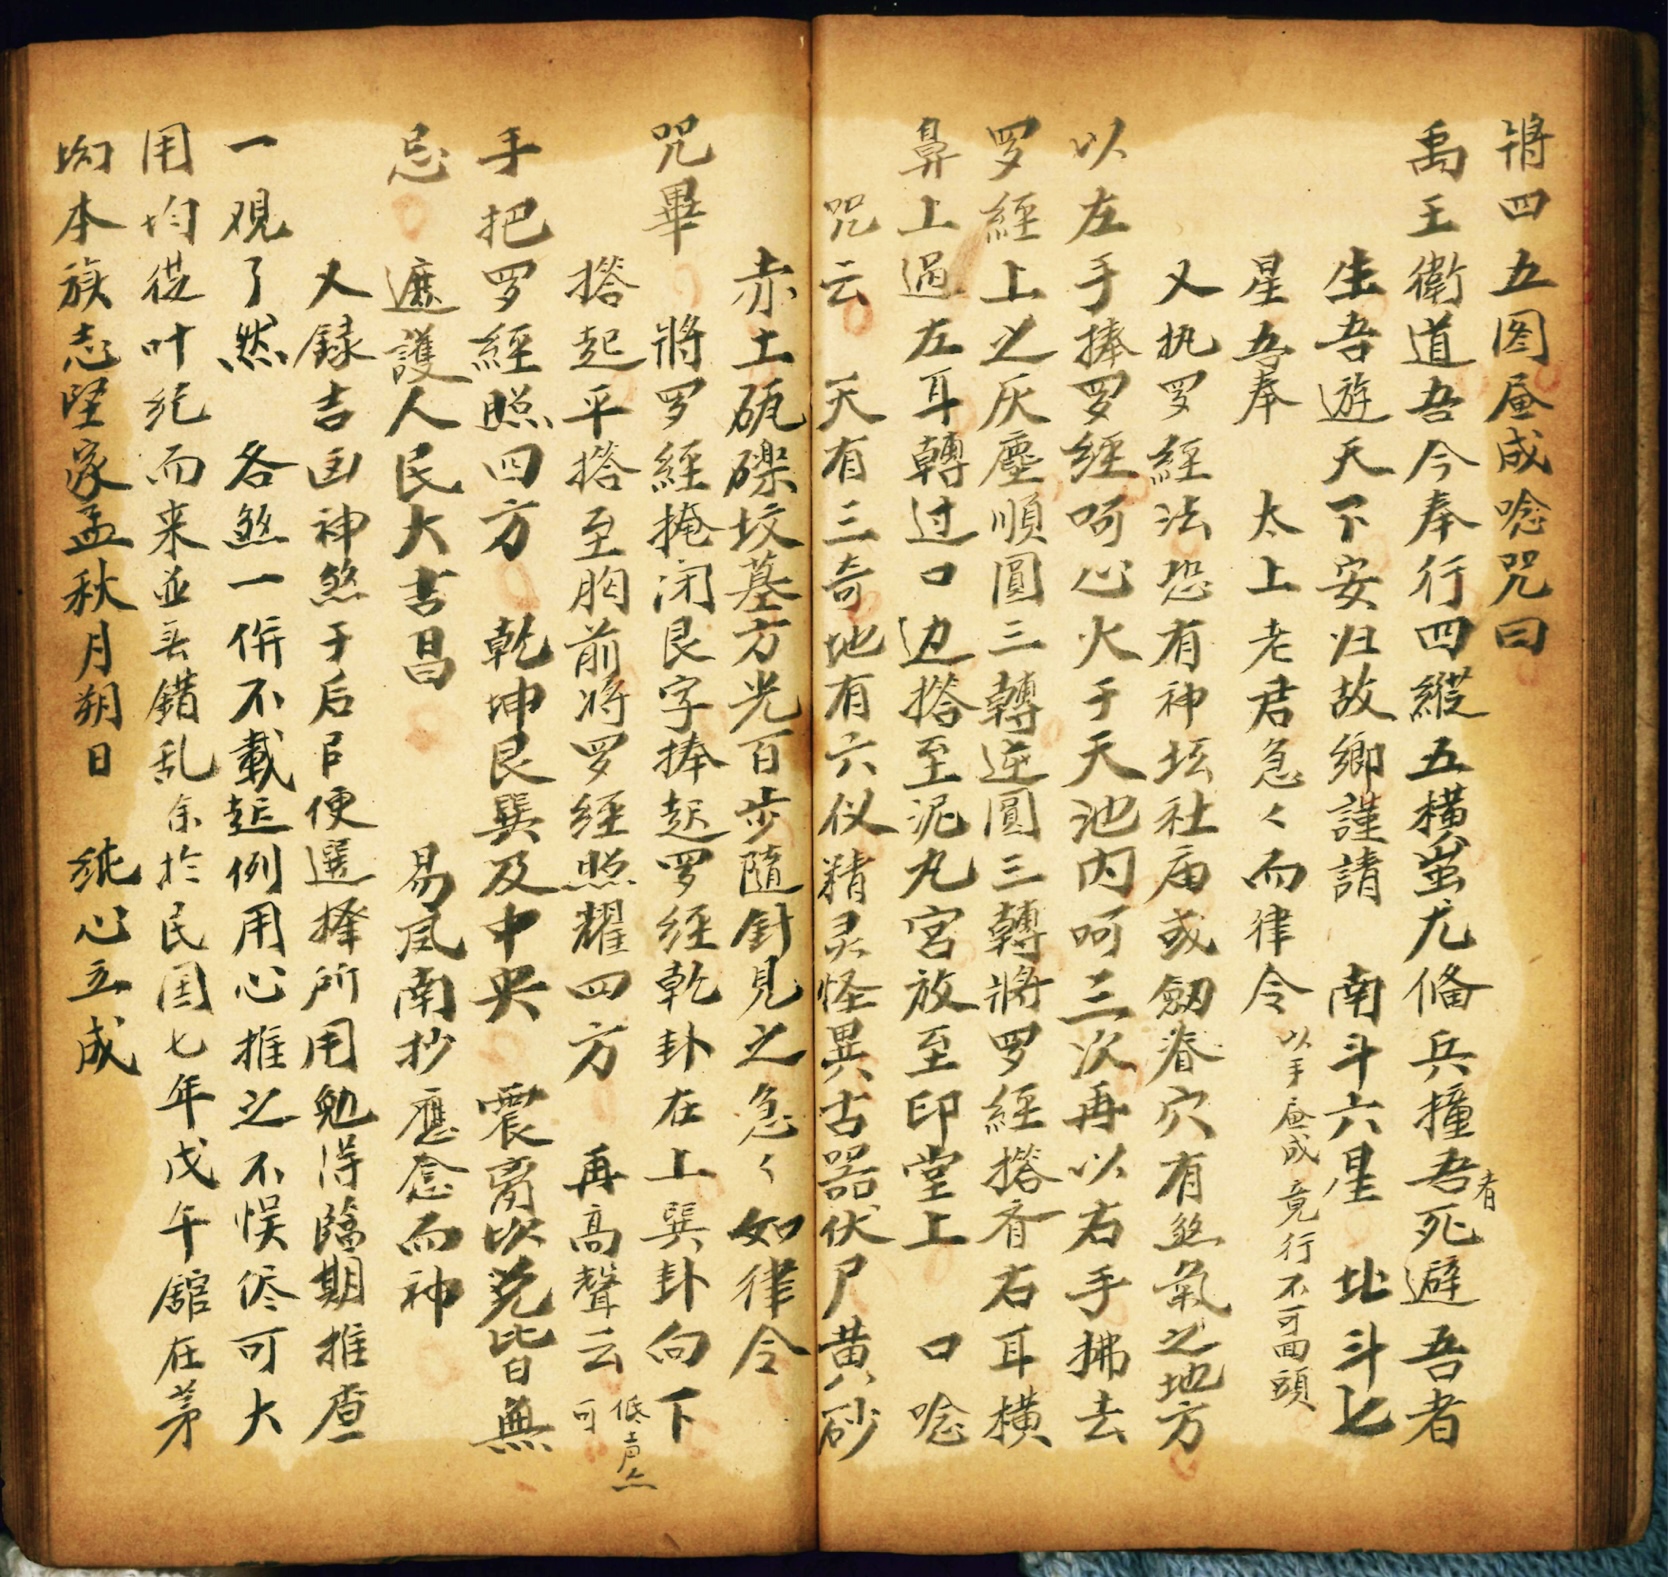 將四五图畫成唸咒曰
禹王衛道吾今奉行四縱五橫蚩尤偹兵撞吾者死避吾者
生吾遊天下安归故鄉謹請　南斗六星　北斗七
星吾奉　太上老君急々而律令　以手畫成竟行不可回頭
又执罗經法恐有神坛社庙或劔脊穴有煞氣之地方
以左手捧罗經呵心火于天池内呵三次再以右手拂去
罗經上之灰塵順圓三轉逆圓三轉將罗經搭脊右耳橫
鼻上過左耳轉过口边搭至泥丸宮放至印堂上　口唸
咒云　天有三奇地有六仪精灵怪異古器伏尸黄砂
赤土瓦礫坟墓方光百步隨針見之急々如律令
咒畢　將罗經掩闭艮字捧起罗經乾卦在上巽卦向下
搭起平搭至胸前将罗經照耀四方　再高聲云　低声亦可
手把罗經照四方　乾坤艮巽及中央　震离坎兑皆無
忌　遮護人民大吉昌　易风南抄應念而神
又録吉凶神煞于后以便選擇所用勉得臨期推查
一观了然　各煞一併不載起例用心推之不悮侭可大
用均從叶纪而来並无錯乱余於民国七年戊午舘在茅
坳本族志堅家孟秋月朔日　純心立成